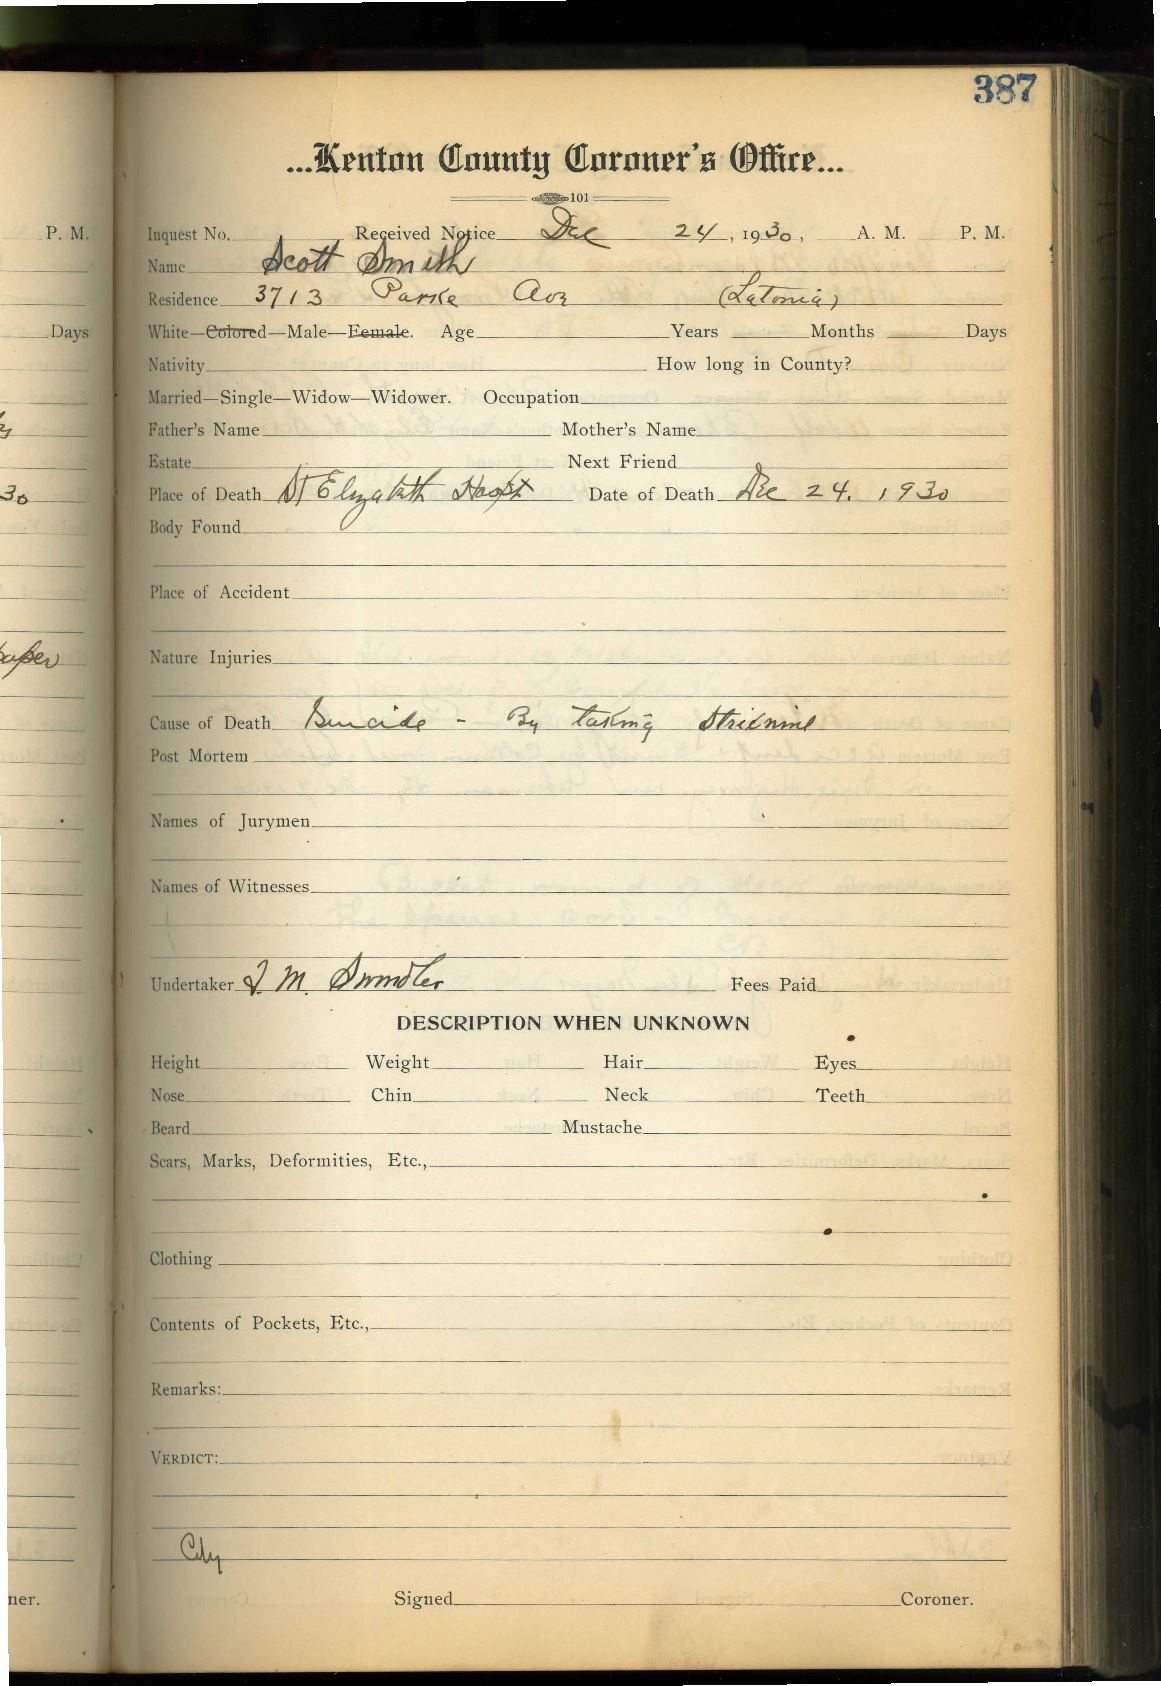 387
...Kenton County Coroner's Office...
101
P. M.
Inquest No. Received Notice Dec 24, 1930, A. M. P. M.
Name Scott Smith
Residence 3713 Parke Ave (Latonia)
Days
White—Colored—Male—Female. Age Years Months Days
Nativity How long in County?
Married—Single—Widow—Widower. Occupation
Father's Name Mother's Name
Estate Next Friend
30
Place of Death St Elizabeth Hospt Date of Death Dec 24. 1930
Body Found
Place of Accident
Nature Injuries
Cause of Death Suicide - By taking Stricnine
Post Mortem
Names of Jurymen
Names of Witnesses
Undertaker J. M. Swindler Fees Paid
DESCRIPTION WHEN UNKNOWN
Height Weight Hair Eyes
Nose Chin Neck Teeth
Beard Mustache
Scars, Marks, Deformities, Etc.,
Clothing
Contents of Pockets, Etc.,
Remarks:
VERDICT:
City
ner.
Signed Coroner.